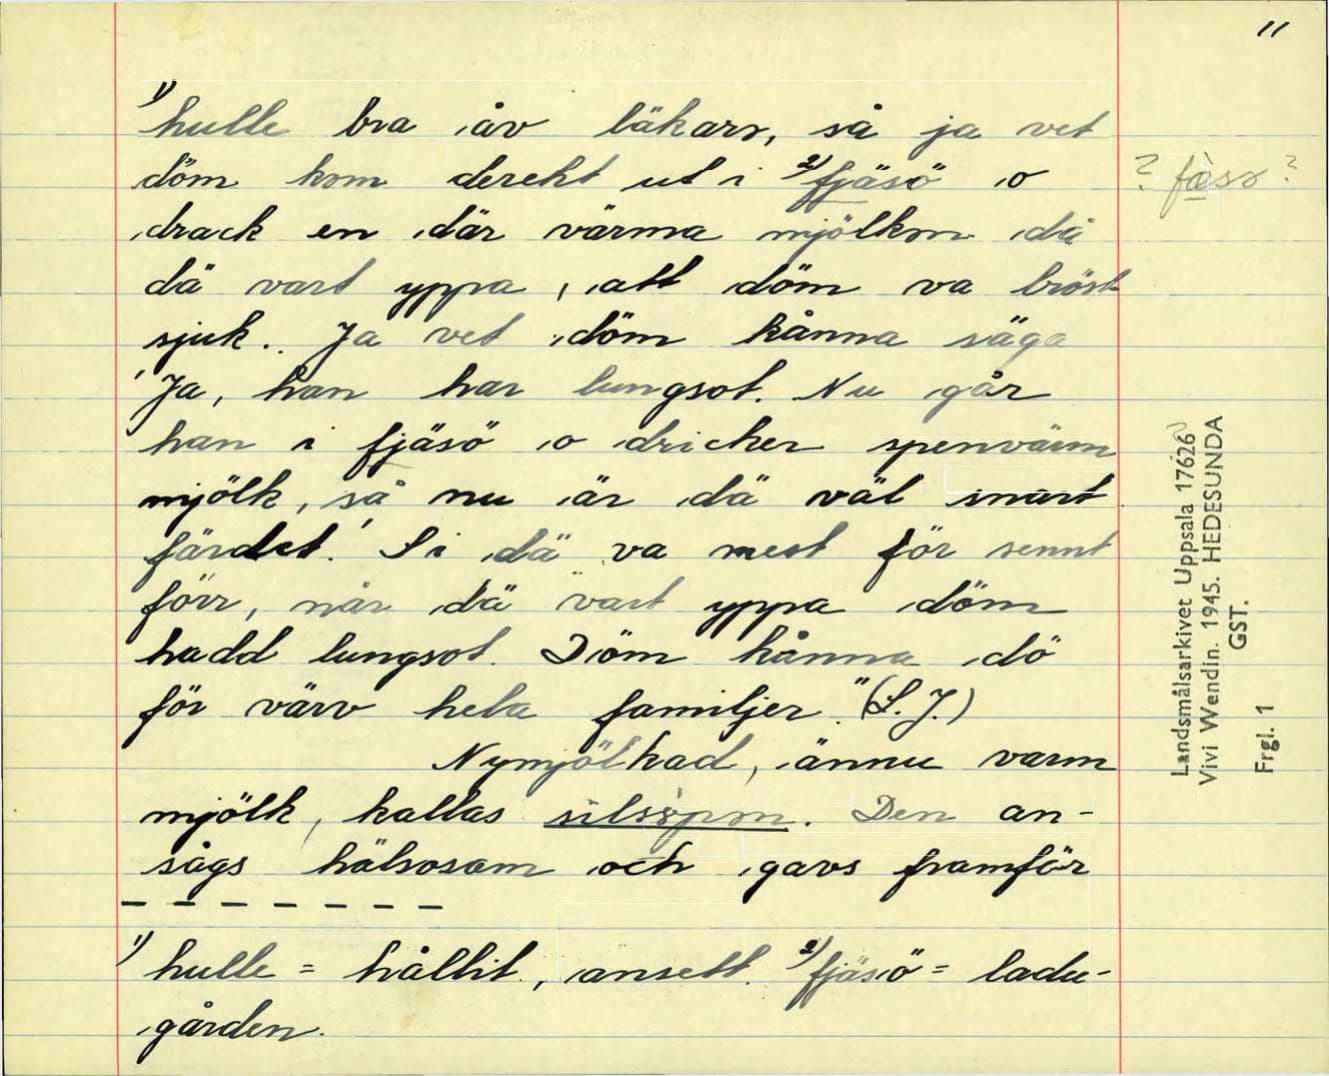 11
1) hulle bra åv läkarn, så ja vet
döm kom derekt ut i 2) fjäsö o
drack en där värma mjölkn då
dä vart yppa, att döm va bröst
sjuk. Ja vet döm kånna säga
'Ja, han har lungsot. Nu går
han i fjäsö o dricker spenvärm
mjölk, så nu är dä väl snart
färdet.' Si dä va mest för sennt
förr, når dä vart yppa döm
hadd lungsot. Döm kånna dö
för värv hela familjer." (S.J.)
Nymjölkad, ännu varm
mjölk, kallas
Den an-
sågs hälsosam och gavs framför
- - - - - - -
1) hulle = hållit, ansett. 2) fjäsö = ladu-
gården.
? ?
Landsmålsarkivet Uppsala 17626
Vivi Wendin. 1945. HEDESUNDA
GST.
Frgl. 1